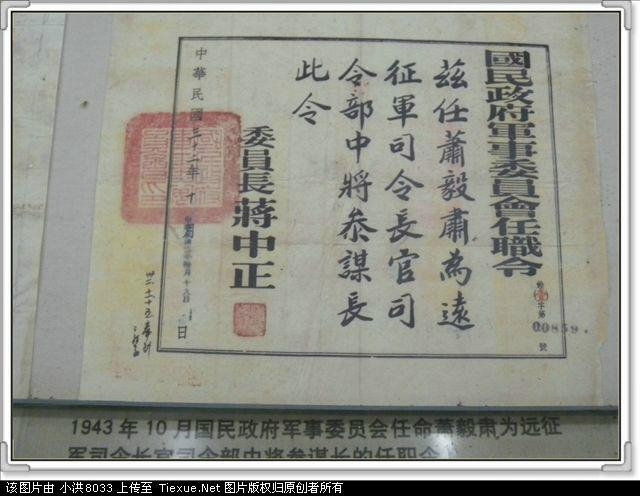 國民政府軍事委員會任職令
茲任蕭毅肅為遠
征軍司令長官司
令部中將參謀長
此令
委員長蔣中正
中華民國三十二年十
日
字第
00859
號
1943年10月国民政府军事委员会任命萧毅肃为远征
军司令长官司令部中将参谋长的任职令
该图片由 小洪8033 上传至 Tiexue.Net 图片版权归原创者所有